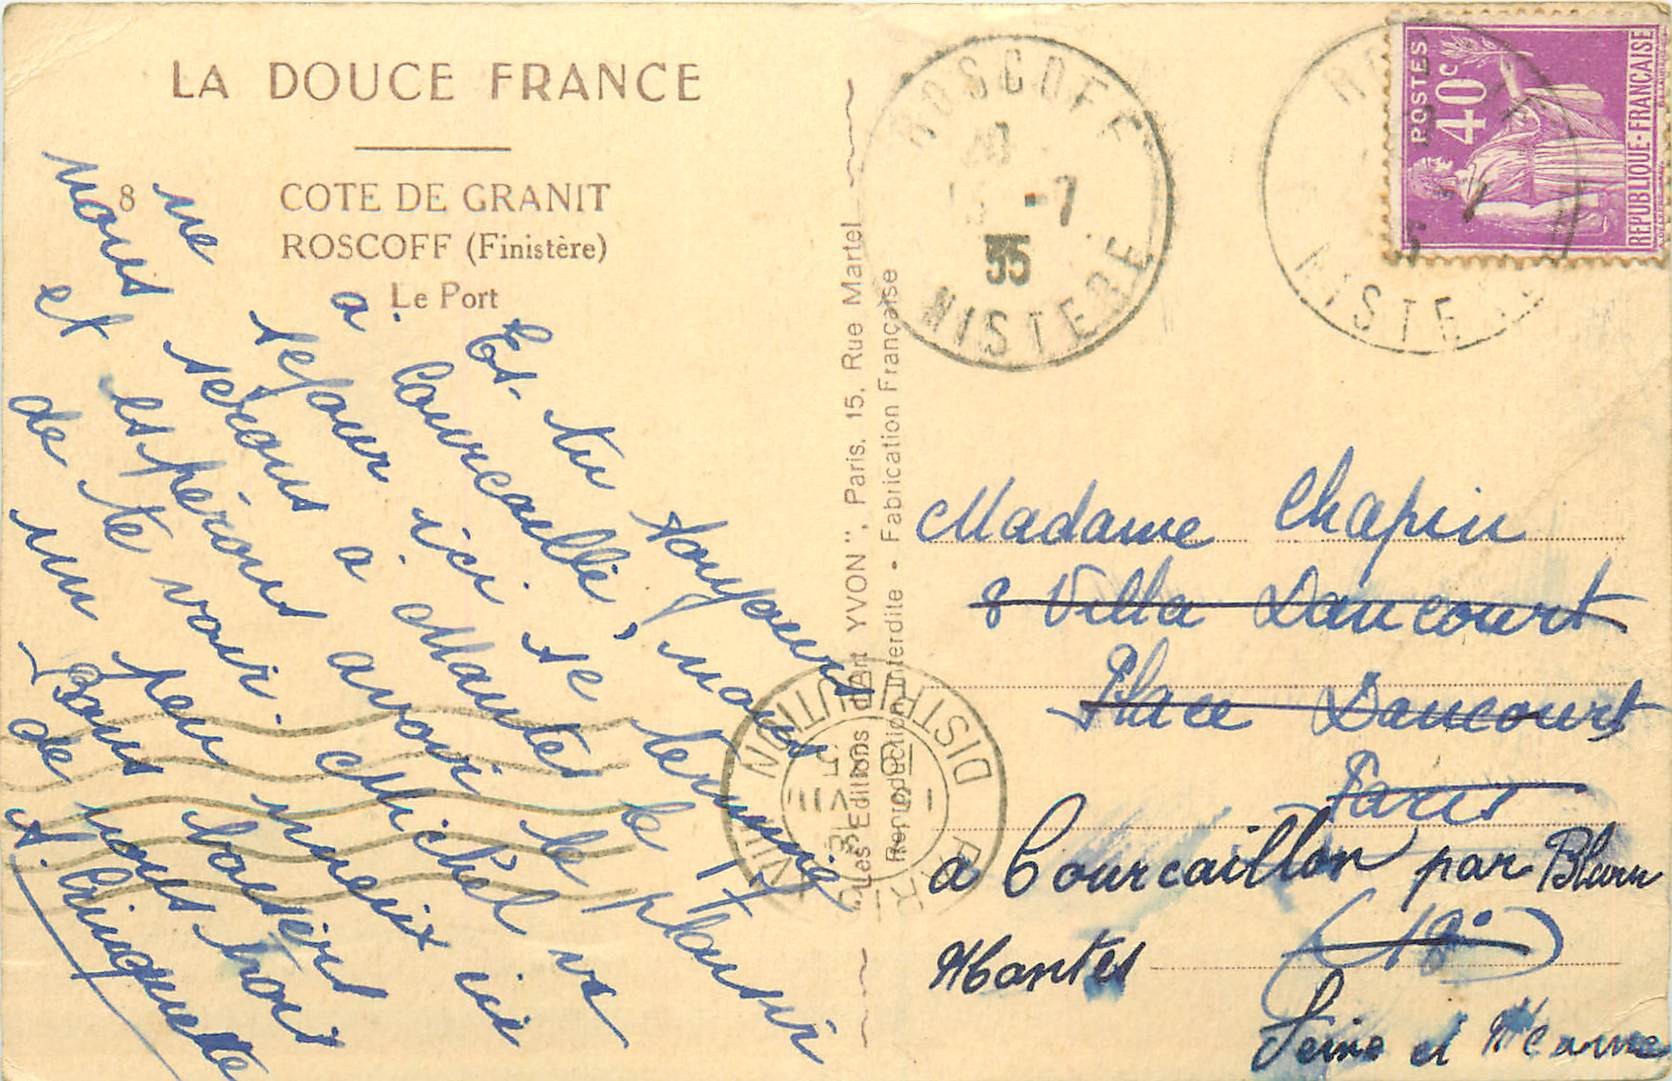 LA DOUCE FRANCE
8
COTE DE GRANIT
ROSCOFF (Finistère)
Le Port
Es-tu toujours
a Courcaille, nous
ne sejour ici se termine
nous serons a Mantes le
et espérons avoir le plaisir
de te voir. Michel va
un peu mieux ici
Bons baisers
de nous trois
A. Cinquette
"Les Editions d'Art YVON", Paris, 15, Rue Martel
Reproduction Interdite • Fabrication Française
ROSCOFF
-7
35
NISTERE
POSTES
40c
REPUBLIQUE-FRANÇAISE
NISTE
DISTRIBUTION
Madame Chapin
8 Villa Dancourt
Place Dancourt
Paris
a Courcaillon par Blam
(18e)
Mantes
Seine et Marne